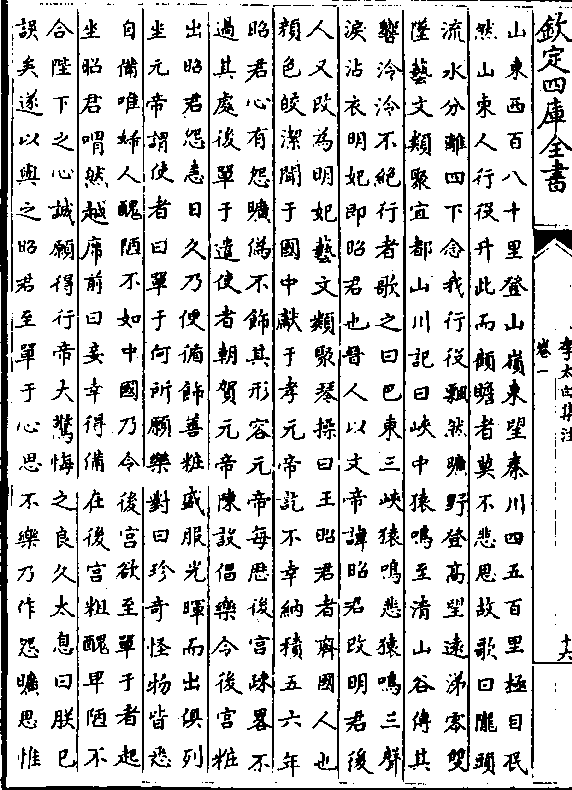 欽定四庫全書
李太白集注
卷一
十六
山東西百八十里登山嶺東望秦川四五百里極目泯
然山東人行役升此而顧瞻者莫不悲思故歌曰隴頭
流水分離四下念我行役飄然曠野登高望遠涕零雙
墮藝文類聚宜都山川記曰峽中猿鳴至清山谷傳其
響泠泠不絕行者歌之曰巴東三峽猿鳴悲猿鳴三聲
淚沾衣明妃即昭君也晉人以文帝諱昭君改明君後
人又改為明妃藝文類聚琴操曰王昭君者齊國人也
顔色皎潔聞于國中獻于孝元帝訖不幸納積五六年
昭君心有怨曠偽不飾其形容元帝每歴後宮疎畧不
過其處後單于遣使者朝賀元帝陳設倡樂令後宮粧
出昭君怨恚日久乃便循飾善粧盛服光暉而出俱列
坐元帝謂使者曰單于何所願樂對曰珍奇怪物皆悉
自備唯婦人醜陋不如中國乃令後宮欲至單于者起
坐昭君喟然越席前曰妾幸得備在後宮粗醜卑陋不
合陛下之心誠願得行帝大驚悔之良久太息曰朕已
誤矣遂以與之昭君至單于心思不樂乃作怨曠思惟